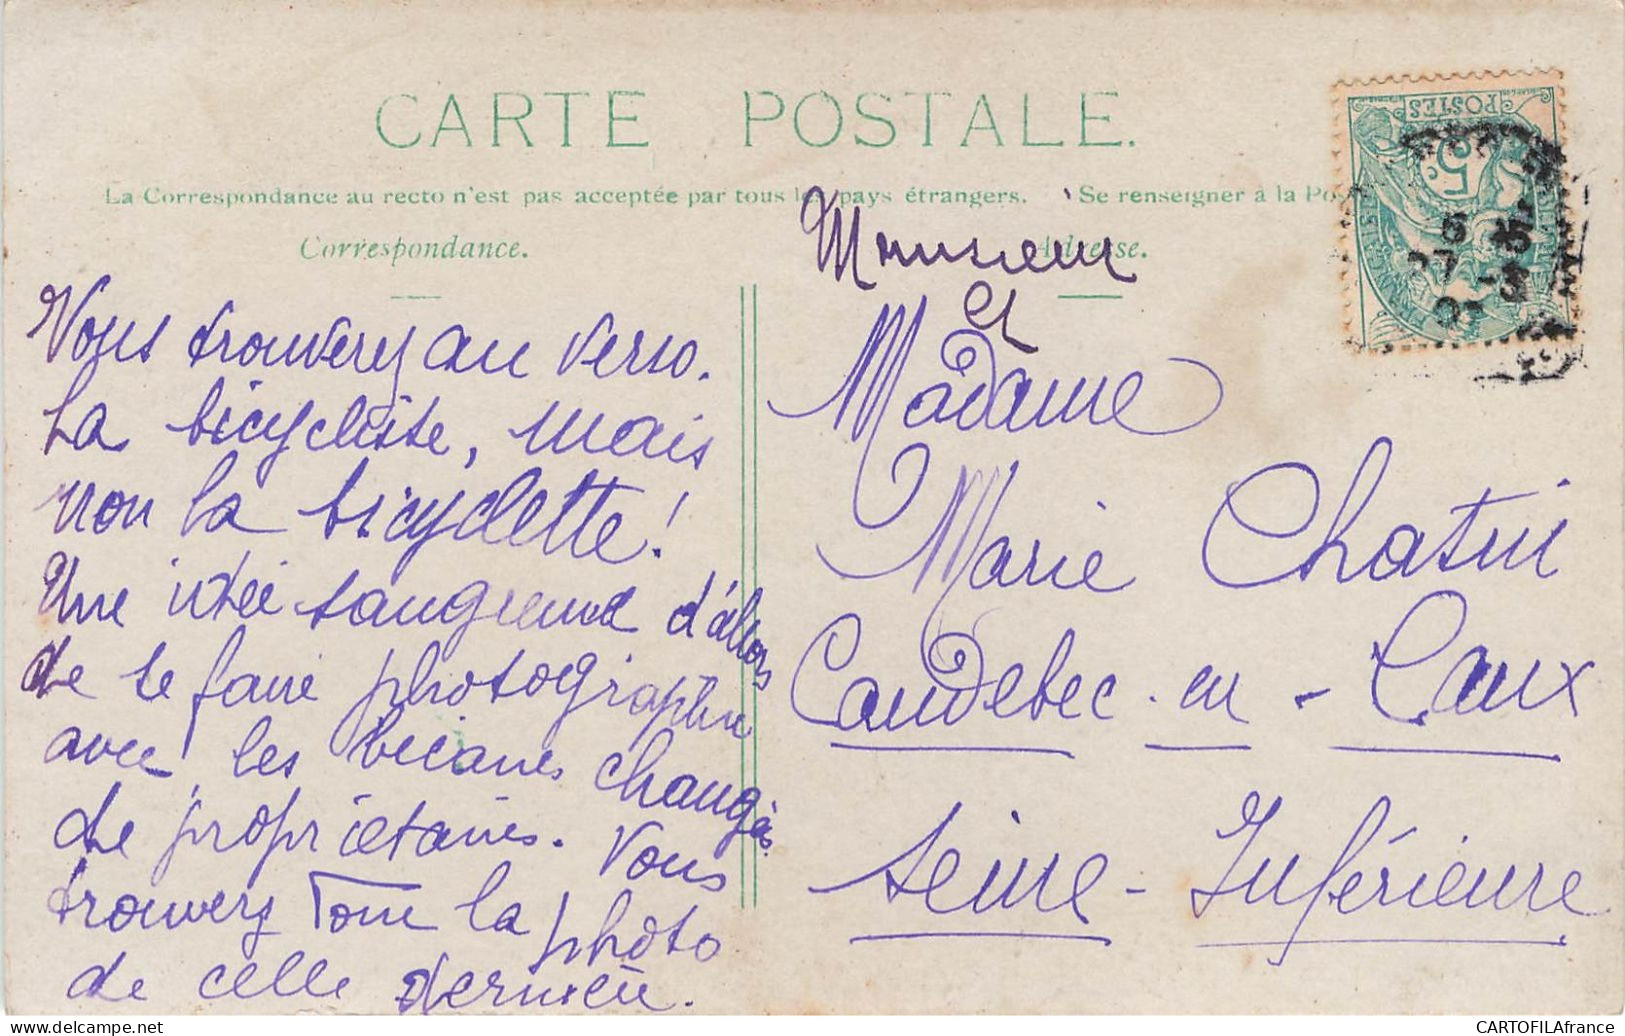 CARTE POSTALE.
La Correspondance au recto n'est pas acceptée par tous les pays étrangers. Se renseigner à la
Correspondance.
Vous trouverez au verso.
La bicycliste, mais
non la bicyclette!
Une idée saugrenue d'alors
de se faire photographier
avec les bécanes changées
de propriétaires. Vous
trouverez Tom la photo
de celle dernière.
Adresse.
Monsieur
et
Madame
Marie Chatui
Caudebec-en-Caux
Seine-Inférieure
POSTES
5c
CARTOFILAfrance